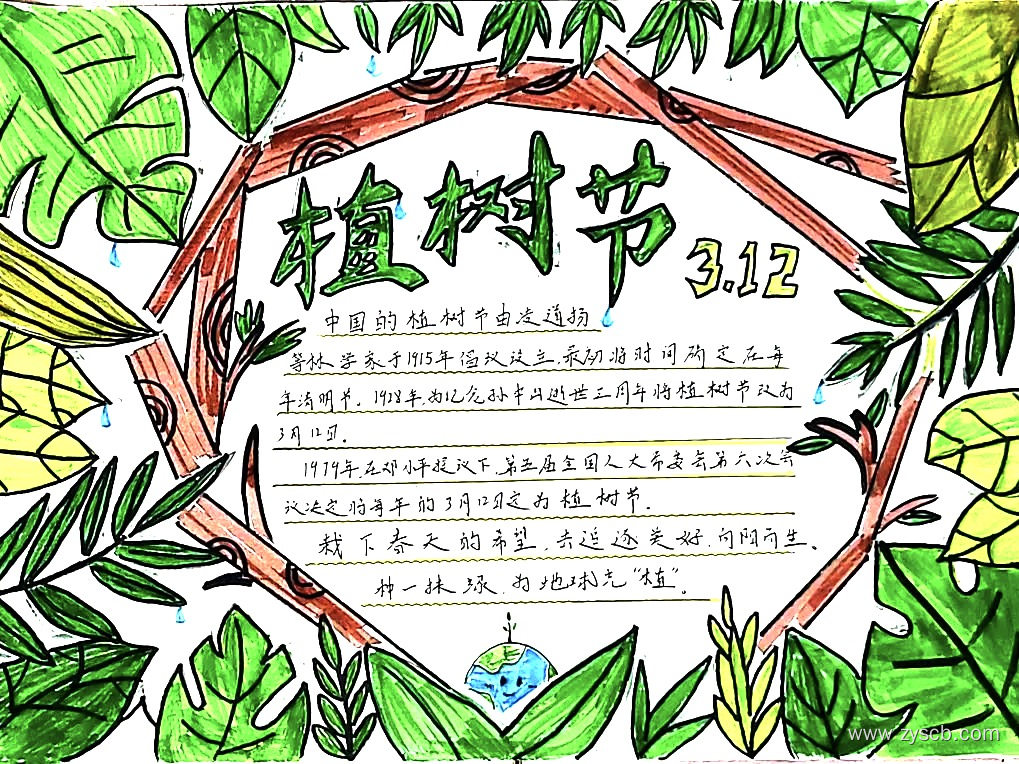 植树节
3.12
中国的植树节由凌道扬
等林学家于1915年倡议设立,最初将时间确定在每
年清明节。1928年,为纪念孙中山逝世三周年将植树节改为
3月12日。
1979年,在邓小平提议下,第五届全国人大常委会第六次会
议决定将每年的3月12日定为植树节。
栽下春天的希望,去追逐美好,向阳而生。
种一抹绿,为地球充“植”。
www.zyscb.com